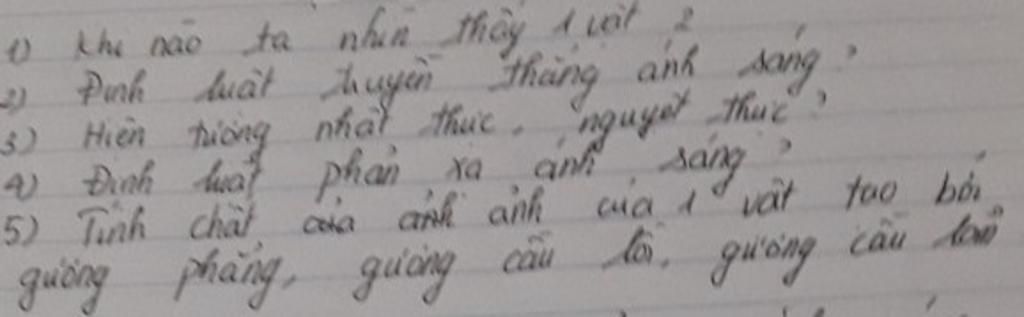 1) Khi nào ta nhìn thấy 1 vật ?
2) Định luật truyền thẳng ánh sáng ?
3) Hiện tượng nhật thực, nguyệt thực ?
4) Định luật phản xạ ánh sáng ?
5) Tính chất của ảnh ảnh của 1 vật tạo bởi
gương phẳng, gương cầu lồi, gương cầu lõm